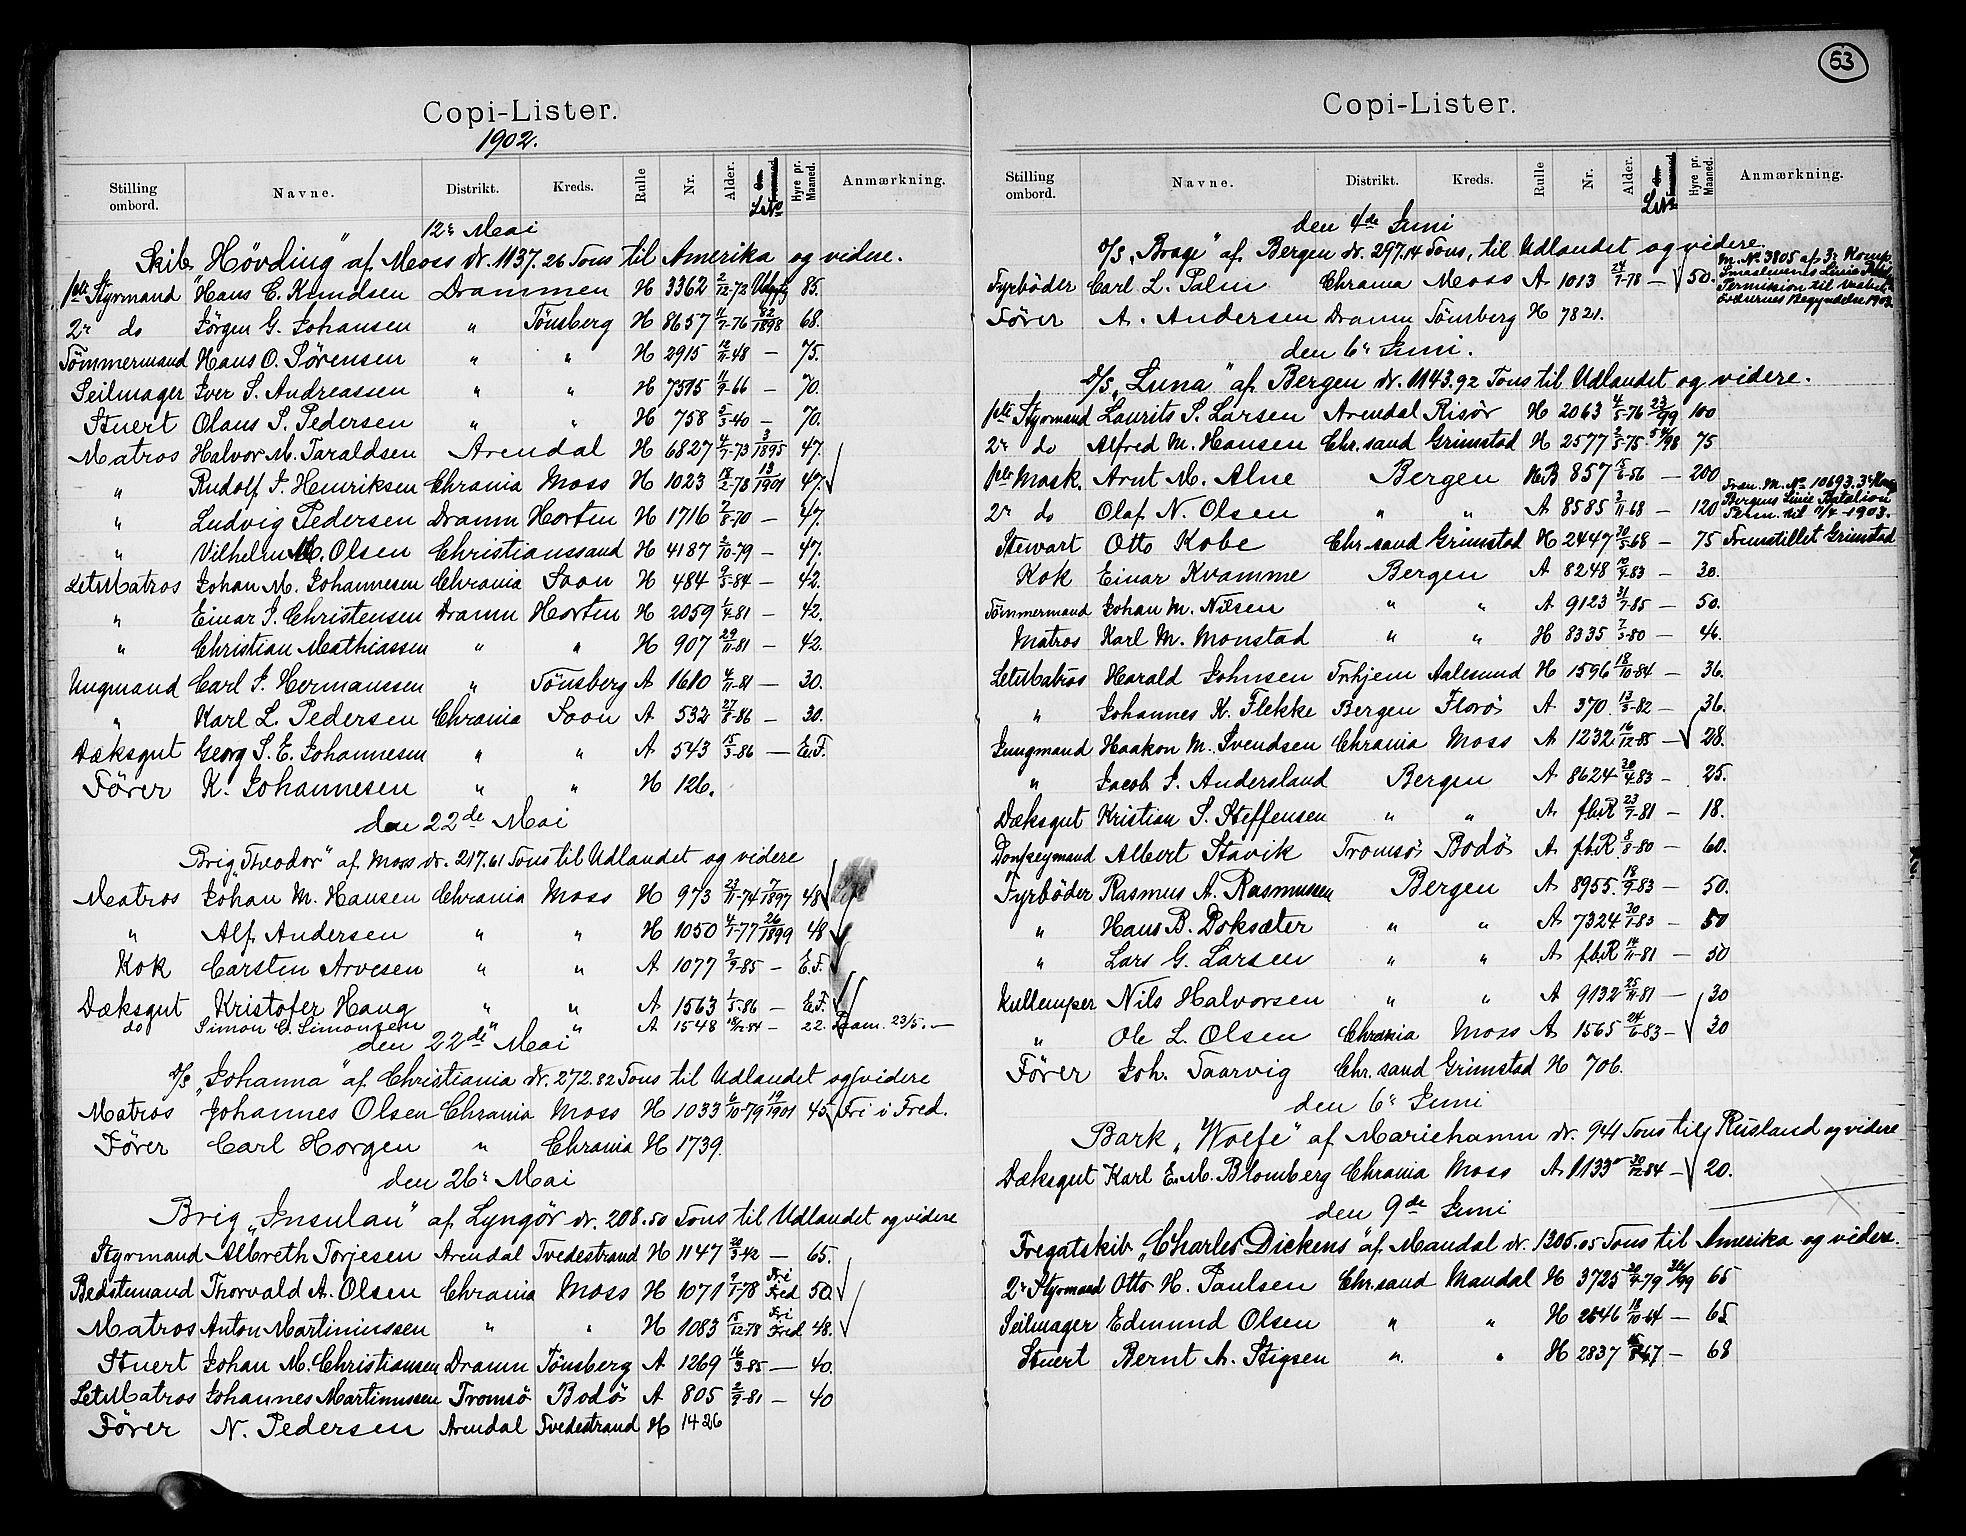 Copi-Lister.
1902.
Stilling ombord. Navne. Distrikt. Kreds. Rulle Nr. Alder. Hyre pr. Maaned. Anmærkning.
12te Mai
Skib "Hövding" af Moss dr. 1137.26 Tons til Amerika og videre.
1ste Styrmand Hans C. Knudsen Drammen H 3362 2/12-72 85.
2r do Jörgen G. Johansen " Tönsberg H 8657 11/7-76 82/1898 68.
Tömmermand Hans O. Sörensen " " H 2915 12/11-48 — 75.
Seilmager Iver S. Andreassen " " H 7515 11/9-66 — 70.
Stuert Olaus S. Pedersen " " H 758 5/3-40 — 70.
Matros Halvor M. Taraldsen Arendal H 6827 4/7-73 3/1895 47.
" Rudolf J. Henriksen Chrania Moss H 1023 18/2-78 13/1901 47.
" Ludvig Pedersen Dramn Horten H 1716 2/8-70 — 47.
" Vilhelm O. Olsen Christianssand H 4187 2/10-79 — 47.
LetMatros Johan M. Johannesen Chrania Soon H 484 9/5-84 — 42.
" Einar J. Christensen Dramn Horten H 2059 1/4-81 — 42.
" Christian Mathiassen " " H 907 29/11-81 — 42.
Ungmand Carl J. Hermanssen " Tönsberg A 1610 4/11-81 — 30.
" Karl L. Pedersen Chrania Soon A 532 27/8-86 — 30.
Dæksgut Georg S. E. Johannesen " " A 543 15/3-86 — E.F.
Förer K. Johannesen " " H 126.
den 22de Mai
Brig "Theodor" af Moss dr. 217.61 Tons til Udlandet og videre
Matros Johan M. Hansen Chrania Moss H 973 23/11-74 7/1897 48
" Alf Andersen " " H 1050 4/1-77 26/1899 48
Kok Carsten Arvesen " " A 1077 9/9-85 — E.F.
Dæksgut Kristofer Haug " " A 1563 1/5-86 — E.F.
do Simon C. Simonsen " " A 1548 18/12-84 — 22. 23/5. —
den 22de Mai
D/S "Johanna" af Christiania dr. 272.82 Tons til Udlandet og videre
Matros Johannes Olsen Chrania Moss H 1033 6/10-79 19/1901 45. Fri i Fred.
Förer Carl Horgen " Chrania H 1739.
den 26r Mai
Brig "Insulan" af Lyngör dr. 208.50 Tons til Udlandet og videre
Styrmand Albreth Torjesen Arendal Tvedestrand H 1147 20/3-42 — 65.
Bedstemand Thorvald A. Olsen Chrania Moss H 1071 7/1-78 Fri Fred 50.
Matros Anton Martiniussen " " H 1083 15/12-78 Fri Fred 48.
Stuert Johan M. Christiansen Dramn Tönsberg A 1269 16/3-85 — 40.
LetMatros Johannes Martinussen Tromsö Bodö A 805 2/9-81 — 40
Förer N. Pedersen Arendal Tvedestrand H 1426
53
Copi-Lister.
Stilling ombord. Navne. Distrikt. Kreds. Rulle Nr. Alder. Hyre pr. Maaned. Anmærkning.
den 4de Juni
D/S "Brage" af Bergen dr. 297.14 Tons, til Udlandet og videre
Fyrböder Carl L. Palm Chrania Moss A 1013 24/9-78 — 50. M. No 3805 af 3r Komp. Smaalenenes Linie Permision til
Förer A. Andersen Dramn Tönsberg H 7821.
den 6r Juni.
D/S "Luna" af Bergen dr. 1143.92 Tons til Udlandet og videre.
1ste Styrmand Laurits S. Larsen Arendal Risör H 2063 4/5-76 23/99 100
2r do Alfred M. Hansen Chr.sand Grimstad H 2577 2/5-75 54/98 75
1ste Mask. Arnt M. Alne Bergen H.B 857 15/6-56 — 200
2r do Olaf N. Olsen " " A 8585 3/11-68 — 120 M. No 10693. Bergens Linie Batalion Perm. til 1/4-1903.
Stewart Otto Kobe Chr.sand Grimstad H 2447 30/5-68 — 75 Fremstillet Grimstad
Kok Einar Kvamme Bergen A 8248 10/9-83 — 30.
Tömmermand Johan M. Nilsen " " A 9123 31/7-85 — 50.
Matros Karl M. Monstad " " H 8335 7/3-80 — 46.
LetMatros Harald Johnsen Trhjem Aalesund H 1596 18/10-84 — 36.
" Johannes K. Flekke Bergen Florö A 370 13/3-82 — 36.
Jungmand Haakon M. Svendsen Chrania Moss A 1232 16/12-85 — 28.
" Jacob J. Andersland Bergen A 8624 30/4-83 — 25.
Dæksgut Kristian S. Steffensen " " A f.b.R 23/7-81 — 18.
Donkeymand Albert Stavik Tromsö Bodö A f.b.R 8/8-80 — 60.
Fyrböder Rasmus A. Rasmussen Bergen A 8955 18/9-83 — 50.
" Hans B. Doksæter " " A 7324 30/1-83 — 50
" Lars G. Larsen " " A f.b.R 14/11-81 — 50
Kullemper Nils Halvorsen " " A 9132 25/11-81 — 30
" Ole L. Olsen Chrania Moss A 1565 24/6-83 — 30
Förer Joh. Taarvig Chr.sand Grimstad H 706.
den 6r Juni
Bark "Wolfe" af Mariehamn dr. 941 Tons til Rusland og videre
Dæksgut Karl E. M. Blomberg Chrania Moss A 1133 30/12-84 — 20.
den 9de Juni
Fregatskib "Charles Dickens" af Mandal dr. 1306.05 Tons til Amerika og videre.
2r Styrmand Otto H. Paulsen Chr.sand Mandal H 3725 20/9-79 36/99 65
Seilmager Edmund Olsen " " H 2646 18/10-64 — 65
Stuert Bernt A. Stigsen " " H 2837 67 — 68